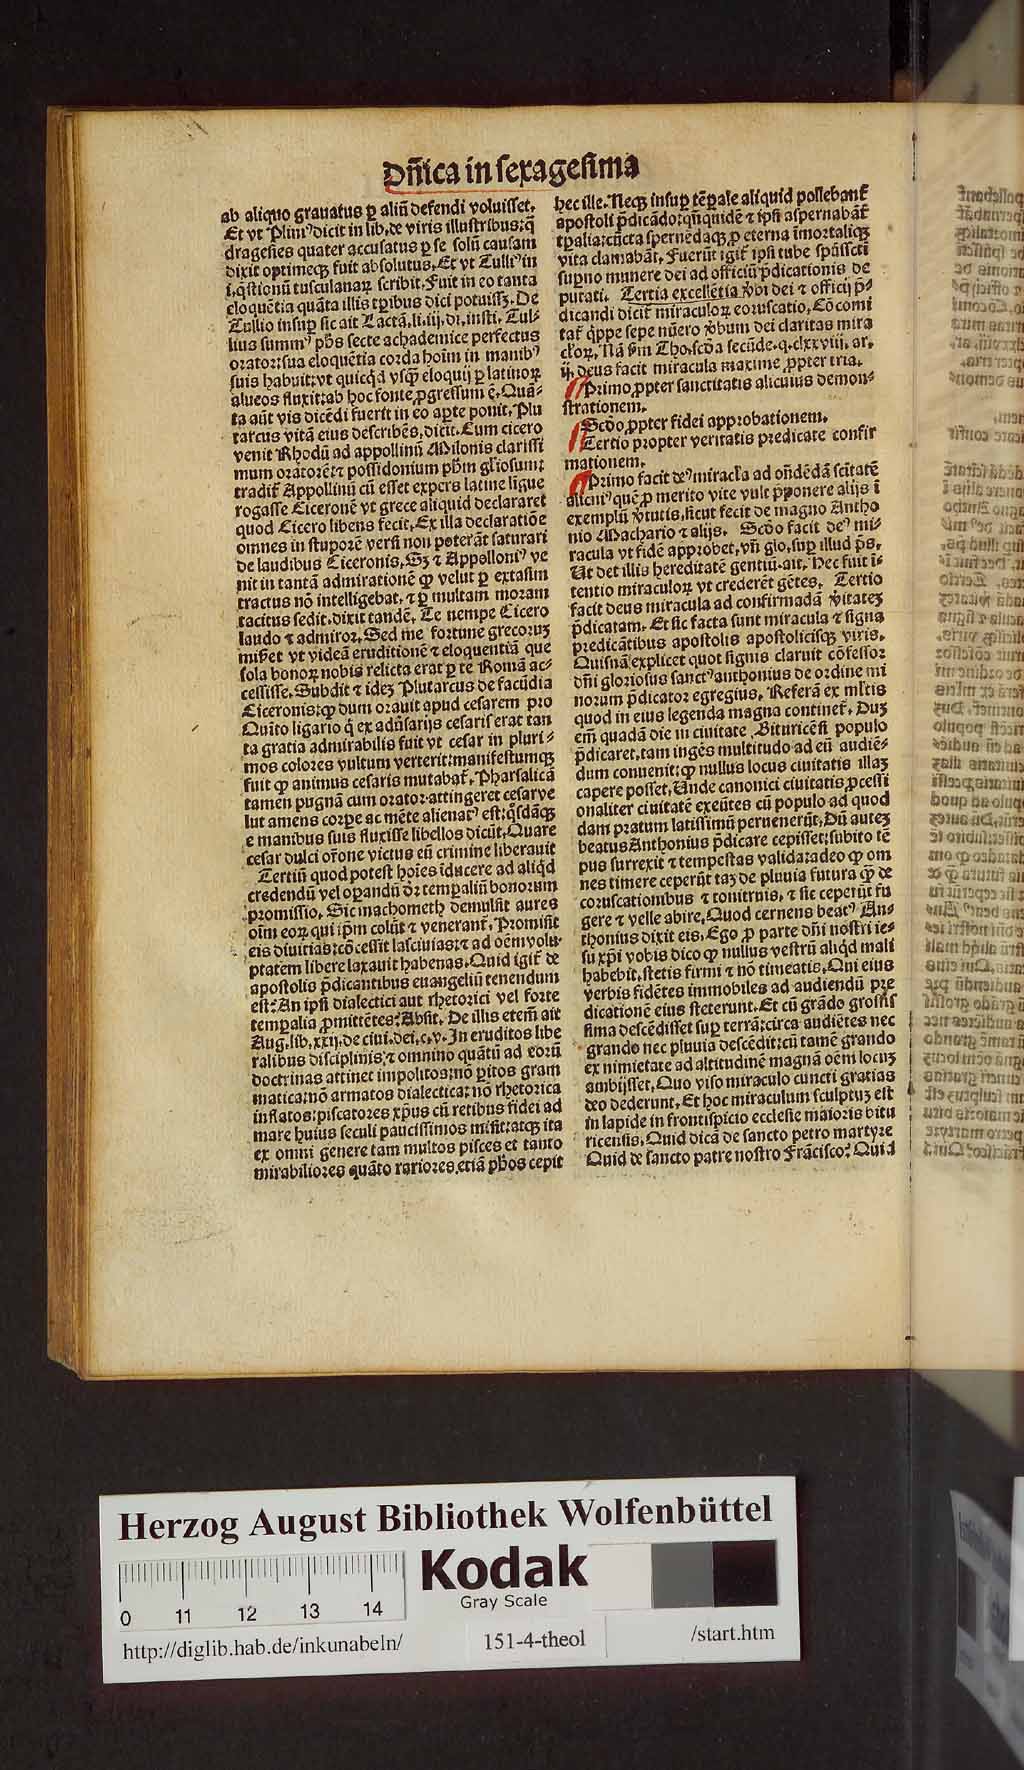 Dñica in sexagesima
ab aliquo grauatus ꝑ aliũ defendi voluisset.
Et vt Pliniꝰ dicit in lib. de viris illustribus: q̃
dragesies quater accusatus ꝑ se solũ causam
dixit optimeqꝫ fuit absolutus. Et vt Tulliꝰ in
i. q̃stionũ tusculanaꝝ scribit. Fuit in eo tanta
eloquẽtia quãta illis tꝑibus dici potuissꝫ. De
Tullio insuꝑ sic ait Lactã. li. iij. di. insti. Tul-
lius summꝰ pħs secte achademice perfectus
orator: sua eloquẽtia corda hoĩm in manibꝰ
suis habuit: vt quicq̃d vsq̃ꝫ eloquij ꝑ latinoꝝ
alueos fluxit: ab hoc fonte ꝓgressum ẽ. Quã-
ta aũt vis dicẽdi fuerit in eo aꝑte ponit. Plu
tarcus vitã eius describẽs, dicit. Cum cicero
venit Rhodũ ad appollinũ Milonis clarissi
mum oratorẽ: ⁊ possidonium pħm gl̃iosum:
tradit̃ Appollinũ cũ esset expers latine lĩgue
rogasse Ciceronẽ vt grece aliquid declararet
quod Cicero libens fecit. Ex illa declaratiõe
omnes in stuporẽ versi non poterãt saturari
de laudibus Ciceronis. Sꝫ ⁊ Appolloniꝰ ve
nit in tantã admirationẽ ꝙ velut ꝑ extasim
tractus nõ intelligebat. ⁊ ꝑ multam moram
tacitus sedit. dixit tandẽ. Te nempe Cicero
laudo ⁊ admiror. Sed me fortune grecoruꝫ
mis̃et vt videã eruditionẽ ⁊ eloquentiã que
sola bonoꝝ nobis relicta erat ꝑ te Romã ac-
cessisse. Subdit ⁊ ideꝫ Plutarcus de facũdia
Ciceronis: ꝙ dum orauit apud cesarem pro
Quĩto ligario q̃ ex adũsarijs cesaris erat tan
ta gratia admirabilis fuit vt cesar in pluri-
mos colores vultum verterit: manifestumqꝫ
fuit ꝙ animus cesaris mutabat̃. Pharsalicã
tamen pugnã cum orator attingeret cesar ve
lut amens corꝑe ac mẽte alienatꝰ est: q̃sdãqꝫ
e manibus suis fluxisse libellos dicũt. Quare
cesar dulci or̃one victus eũ crimine liberauit
Tertiũ quod potest hoĩes ĩducere ad aliq̃d
credendũ vel oꝑandũ dr̃: temꝑaliũ bonorum
promissio. Sic machometh demulsit aures
oĩm eoꝝ qui ip̃m colũt ⁊ venerant̃. Promisit
eis diuitias: cõcessit lasciuias: ⁊ ad oẽm volu-
ptatem libere laxauit habenas. Quid igit̃ de
apostolis p̃dicantibus euangeliũ tenendum
est? An ipsi dialectici aut rhetorici vel forte
temꝑalia ꝓmittẽtes? Absit. De illis etem̃ ait
Aug. lib. xxij. de ciui. dei. c. v. In eruditos libe
ralibus disciplinis: ⁊ omnino quãtũ ad eorũ
doctrinas attinet impolitos: nõ ꝑitos gram
matica: nõ armatos dialectica: nõ rhetorica
inflatos: piscatores xp̃us cũ retibus fidei ad
mare huius seculi paucissimos misit: atqꝫ ita
ex omni genere tam multos pisces et tanto
mirabiliores quãto rariores. etiã pħos cepit
hec ille. Neqꝫ insuꝑ tẽꝑale aliquid pollebant̃
apostoli p̃dicãdo: qm̃quidẽ ⁊ ipsi aspernabãt̃
tꝑalia: cũcta spernẽdaqꝫ ꝓ eterna ĩmortaliqꝫ
vita clamabãt. Fuerũt igit̃ ipsi tube sp̃ũssct̃i
suꝑno munere dei ad officiũ p̃dicationis de
putati. Tertia excellẽtia v̾bi dei ⁊ officij p̃-
dicandi dicit̃ miraculoꝝ coruscatio. Cõcomi
tat̃ q̃ppe sepe nũero v̾bum dei claritas mira
cl̃oꝝ. Nã s̃m Tho. scd̃a secũde. q. clxxviij. ar.
ij. deus facit miracula maxime ꝓpter tria.
Primo ꝓpter sanctitatis alicuius demon-
strationem.
Scd̃o ꝓpter fidei approbationem.
Tertio propter veritatis predicate confir
mationem.
Primo facit deꝰ miracl̃a ad oñdẽdã scitatẽ
alicuiꝰ quẽ ꝓ merito vite vult p̃ponere alijs ĩ
exemplũ v̾tutis. sicut fecit de magno Antho
nio Machario ⁊ alijs. Scd̃o facit deꝰ mi-
racula vt fidẽ approbet. vñ glo. suꝑ illud ps̃.
Ut det illis hereditatẽ gentiũ. ait. Hec fuit ĩ-
tentio miraculoꝝ vt crederẽt gẽtes. Tertio
facit deus miracula ad confirmadã v̾itateꝫ
p̃dicatam. Et sic facta sunt miracula ⁊ signa
predicãtibus apostolis apostolicisqꝫ viris.
Quisnã explicet quot signis claruit cõfessor
dñi gloriosus sanctꝰ anthonius de ordine mi
norum p̃dicator egregius. Referã ex ml̃tis
quod in eius legenda magna continet̃. Duꝫ
em̃ quadã die in ciuitate Bituricẽsi populo
p̃dicaret. tam ingẽs multitudo ad eũ audiẽ-
dum conuenit: ꝙ nullus locus ciuitatis illaꝫ
capere posset. Unde canonici ciuitatis ꝓcessi
onaliter ciuitatẽ exeũtes cũ populo ad quod
dam pratum latissimũ peruenerũt. Dũ auteꝫ
beatus Anthonius p̃dicare cepisset: subito tẽ
pus surrexit ⁊ tempestas valida: adeo ꝙ om
nes timere ceperũt taꝫ de pluuia futura q̃ꝫ de
coruscationibus ⁊ tonitruis. ⁊ sic ceperũt fu
gere ⁊ velle abire. Quod cernens beatꝰ An-
thonius dixit eis. Ego ꝓ parte dñi nostri ie-
su xp̃i vobis dico ꝙ nullus vestrũ aliq̃d mali
habebit. stetis firmi ⁊ nõ timeatis. Qui eius
verbis fidẽtes immobiles ad audiendũ pre
dicationẽ eius steterunt. Et cũ grãdo grossis
sima descẽdisset suꝑ terrã: circa audiẽtes nec
grando nec pluuia descẽdit: cũ tamẽ grando
ex nimietate ad altitudinẽ magnã oẽm locuꝫ
ambijsset. Quo viso miraculo cuncti gratias
deo dederunt. Et hoc miraculum sculptuꝫ est
in lapide in frontispicio ecclesie maioris bitu
ricensis. Quid dicã de sancto petro martyre
Quid de sancto patre nostro Frãcisco? Quid
Herzog August Bibliothek Wolfenbüttel
Kodak
Gray Scale
0 11 12 13 14
http://diglib.hab.de/inkunabeln/ 151-4-theol /start.htm